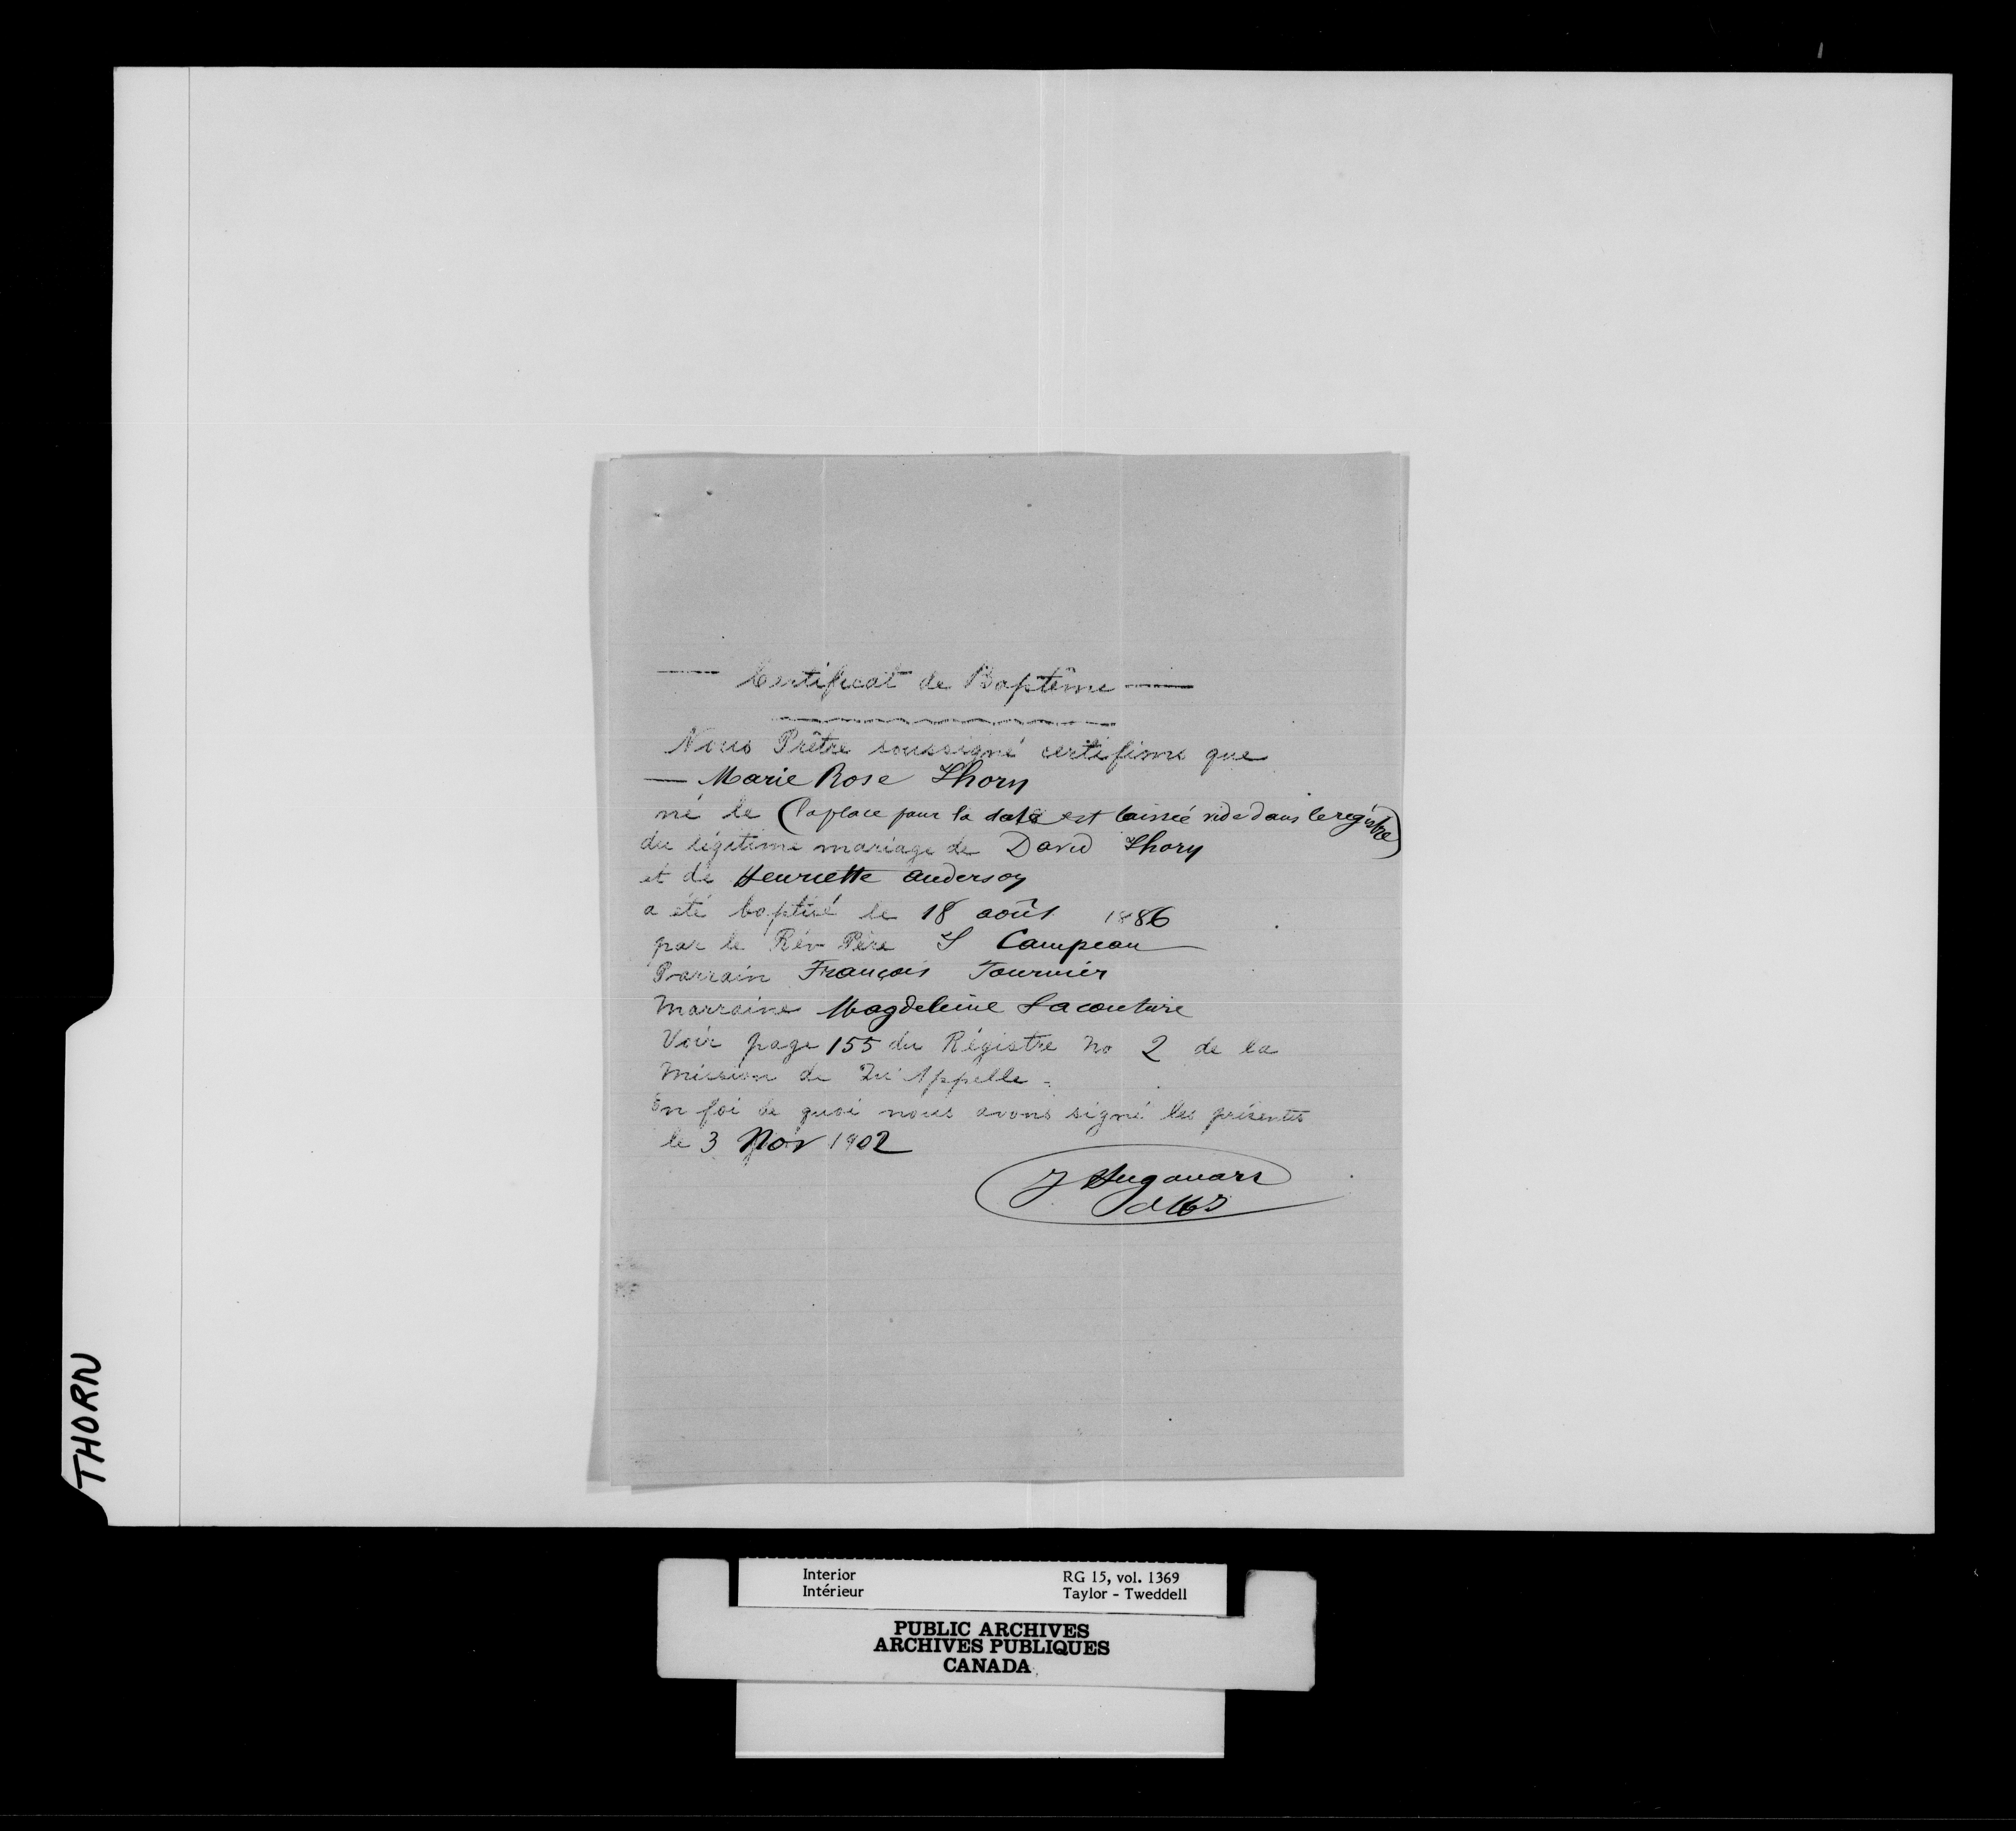 Certificat de Baptême
Nous Prêtre soussigné certifions que
— Marie Rose Thorn
né le (la place pour la date est laissée vide dans le régistre)
du légitime mariage de David Thorn
et de Henriette Anderson
a été baptisé le 18 août 1886
par le Rév Père S Campeau
Parrain François Tournier
Marraine Magdeleine Lacouture
Voir page 155 du Régistre No 2 de la
Mission de Qu'Appelle.
En foi de quoi nous avons signé les présentes
le 3 Nov 1902
J Hugonard
THORN
Interior
Intérieur
RG 15, vol. 1369
Taylor - Tweddell
PUBLIC ARCHIVES
ARCHIVES PUBLIQUES
CANADA